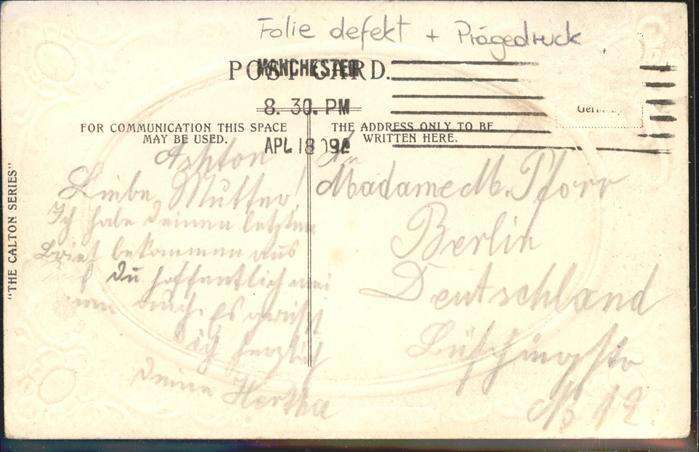 Folie defekt + Prägedruck
POST CARD.
MANCHESTER
8. 30. PM
APL 18 09
FOR COMMUNICATION THIS SPACE
MAY BE USED.
THE ADDRESS ONLY TO BE
WRITTEN HERE.
"THE CALTON SERIES"
Ashton
Liebe Mutter!
Ich habe deinen letzten
Brief bekommen aus
Du hoffentlich
Es grüßt
dich herzlich
Deine Hertha
Madame M. Pforr
Berlin
Deutschland
No 12.